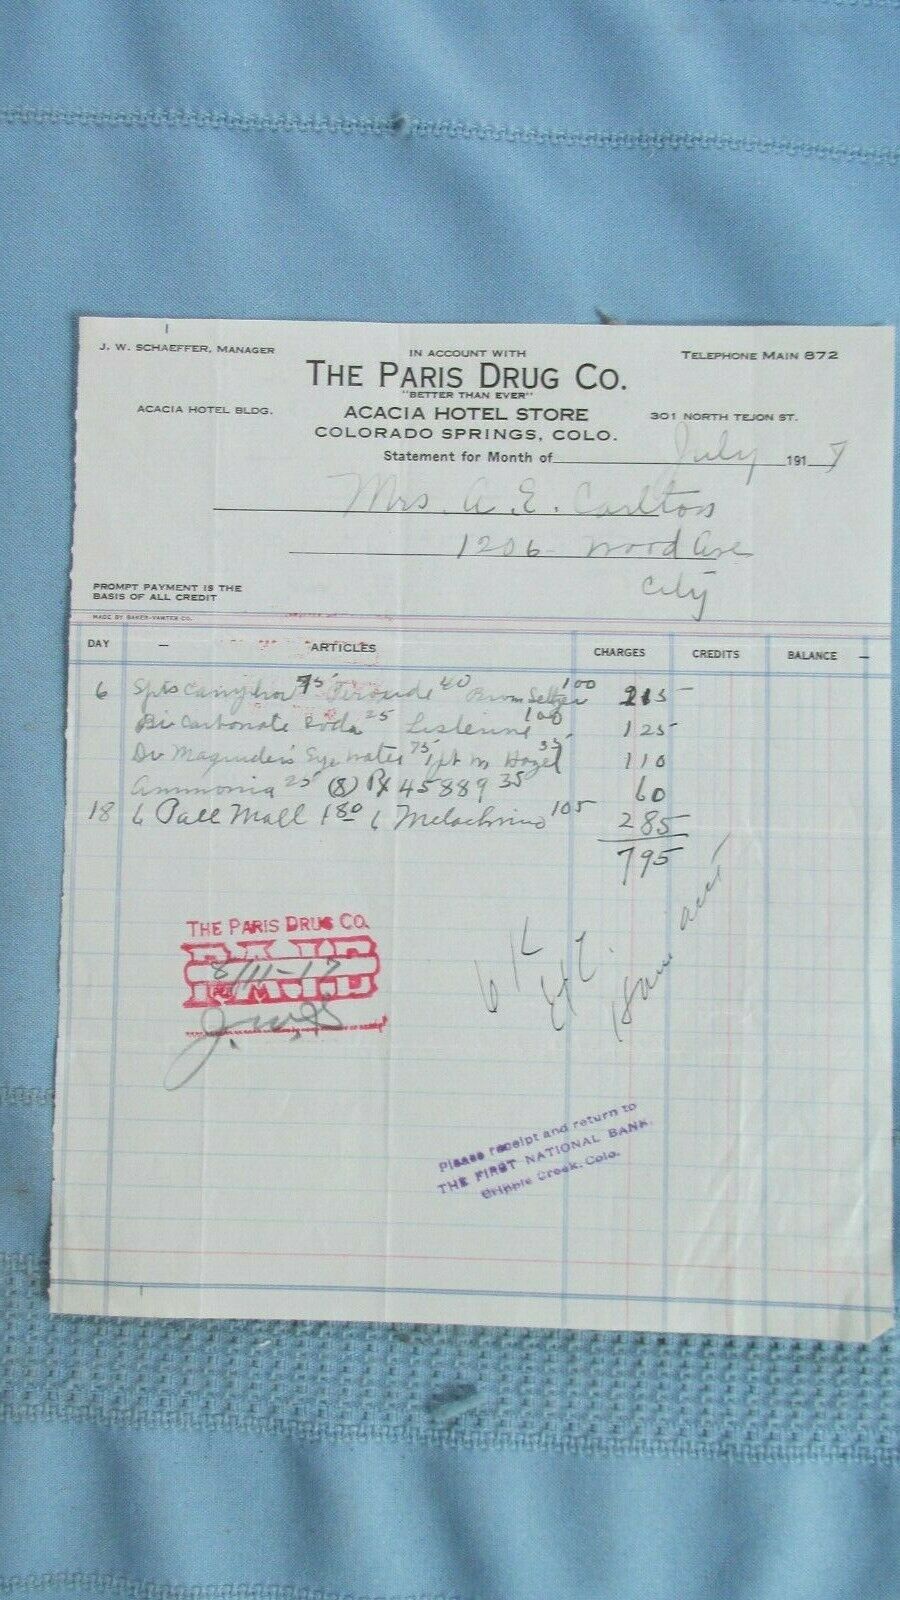 J. W. SCHAEFFER, MANAGER
IN ACCOUNT WITH
TELEPHONE MAIN 872
THE PARIS DRUG CO.
"BETTER THAN EVER"
ACACIA HOTEL BLDG.
ACACIA HOTEL STORE
301 NORTH TEJON ST.
COLORADO SPRINGS, COLO.
Statement for Month of July 1917
Mrs. A. E. Carlton
1206 Wood Ave
City
PROMPT PAYMENT IS THE
BASIS OF ALL CREDIT
MADE BY BAKER-VAWTER CO.
DAY — ARTICLES CHARGES CREDITS BALANCE —
6 Spts Camphor 75 Peroxide 40 Brom Seltzer 100 215
Bi Carbonate Soda 25 Listerine 100 125
Dr Magruder's Eye Water 75 1 pt W Hazel 35 110
Ammonia 25 (8) Rx 45889 35 60
18 6 Pall Mall 180 6 Melachrino 105 285
795
THE PARIS DRUG CO.
PAID
8/11-17
J.W.S.
O K
Please receipt and return to
THE FIRST NATIONAL BANK.
Cripple Creek, Colo.